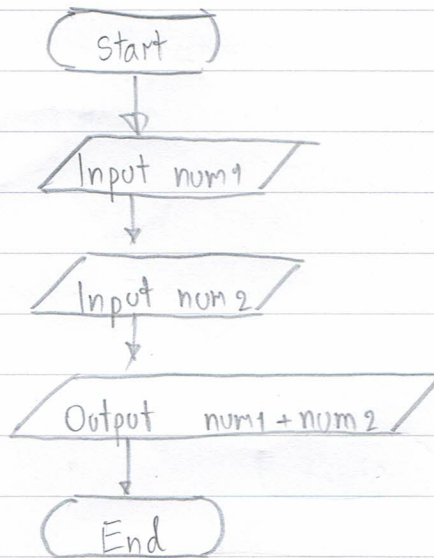 Start
Input num1
Input num2
Output num1 + num2
End